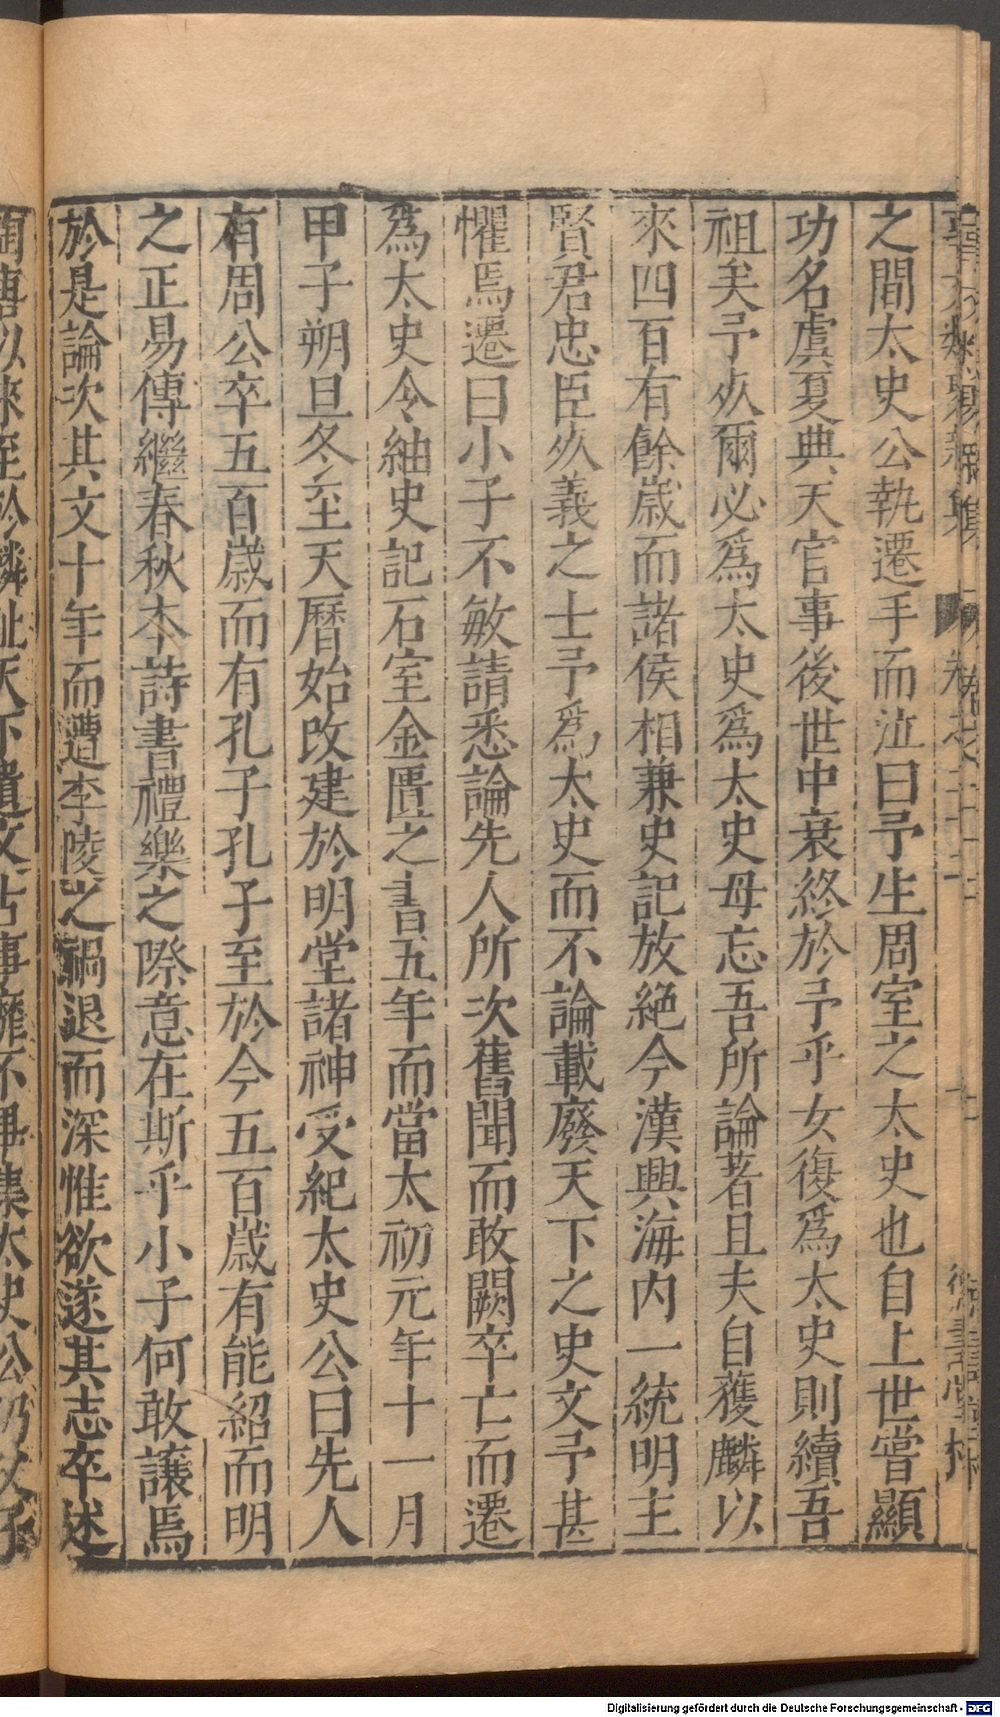 之間太史公執遷手而泣曰予生周室之太史也自上世嘗顯
功名虞夏典天官事後世中衰終於予乎女復爲太史則續吾
祖矣予㱑爾必爲太史爲太史毋忘吾所論著且夫自獲麟以
來四百有餘歲而諸侯相兼史記放絕今漢興海内一統明主
賢君忠臣㱑義之士予爲太史而不論載廢天下之史文予甚
懼焉遷曰小子不敏請悉論先人所次舊聞而敢闕卒亡而遷
爲太史令紬史記石室金匱之書五年而當太初元年十一月
甲子朔旦冬至天曆始改建於明堂諸神受紀太史公曰先人
有周公卒五百歲而有孔子孔子至於今五百歲有能紹而明
之正易傳繼春秋本詩書禮樂之際意在斯乎小子何敢讓焉
於是論次其文十年而遭李陵之禍退而深惟欲遂其志卒述
陶唐以來至於麟趾天下遺文古事靡不畢集太史公仍父子
Digitalisierung gefördert durch die Deutsche Forschungsgemeinschaft - DFG